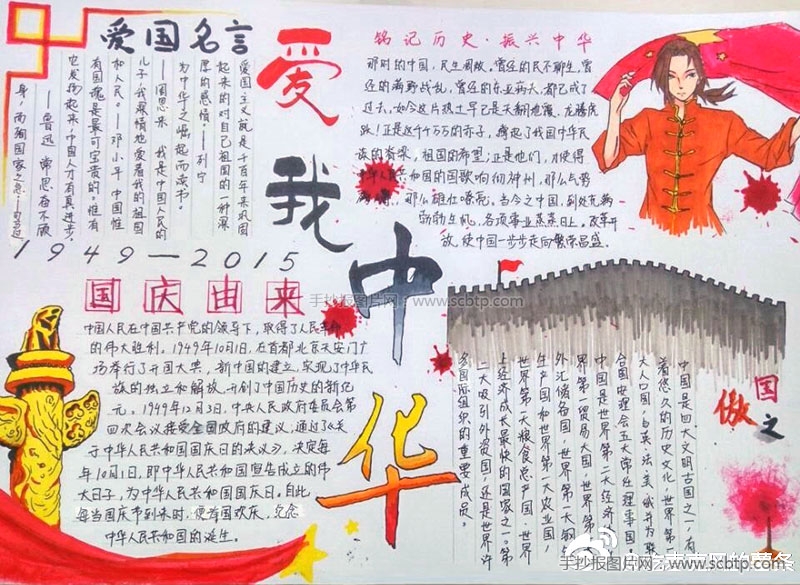 爱国名言
爱国主义就是千百年来巩固
起来的对自己祖国的一种深
厚的感情。——列宁
为中华之崛起而读书。
——周恩来 我是中国人民的
儿子，我深情地爱着我的祖国
和人民。——邓小平 中国惟
有国魂是最可宝贵的，惟有
它发扬起来，中国人才有真进步。
——鲁迅 常思奋不顾
身，而殉国家之急。
1949—2015
爱我中华
铭记历史·振兴中华
那时的中国，民生凋敝，曾经的民不聊生，曾
经的满野战乱，曾经的东亚病夫，都已成了
过去。如今这片热土早已是天翻地覆、龙腾虎
跃！正是这千千万万的赤子，撑起了我国中华民
族的脊梁，祖国的希望；正是他们，才使得
中华人民共和国的国歌响彻神州，那么气势
那么雄壮嘹亮。当今之中国，到处充满
勃勃生机，各项事业蒸蒸日上。改革开
放，使中国一步步走向繁荣昌盛。
国庆由来
中国人民在中国共产党的领导下，取得了人民革命
的伟大胜利。1949年10月1日，在首都北京天安门广
场举行了开国大典，新中国的建立，实现了中华民
族的独立和解放，开创了中国历史的新纪
元。1949年12月3日，中央人民政府委员会第
四次会议接受全国政府的建议，通过了《关
于中华人民共和国国庆日的决议》，决定每
年10月1日，即中华人民共和国宣告成立的伟
大日子，为中华人民共和国国庆日。自此，
每当国庆节到来时，便举国欢庆，纪念
中华人民共和国的诞生。
国之傲
中国是四大文明古国之一，有
着悠久的历史文化，世界第
大人口国，与英、法、美、俄并为联
合国安理会五大常任理事国
中国是世界第二大经济体，世
界第一贸易大国，世界第一大
外汇储备国，世界第一大钢
生产国和世界第一大农业国，
世界第一大粮食总产国，世界
上经济成长最快的国家之一。第
二大吸引外资国，还是世界许
多国际组织的重要成员。
手抄报图片网：www.scbtp.com
手抄报图片网 www.scbtp.com